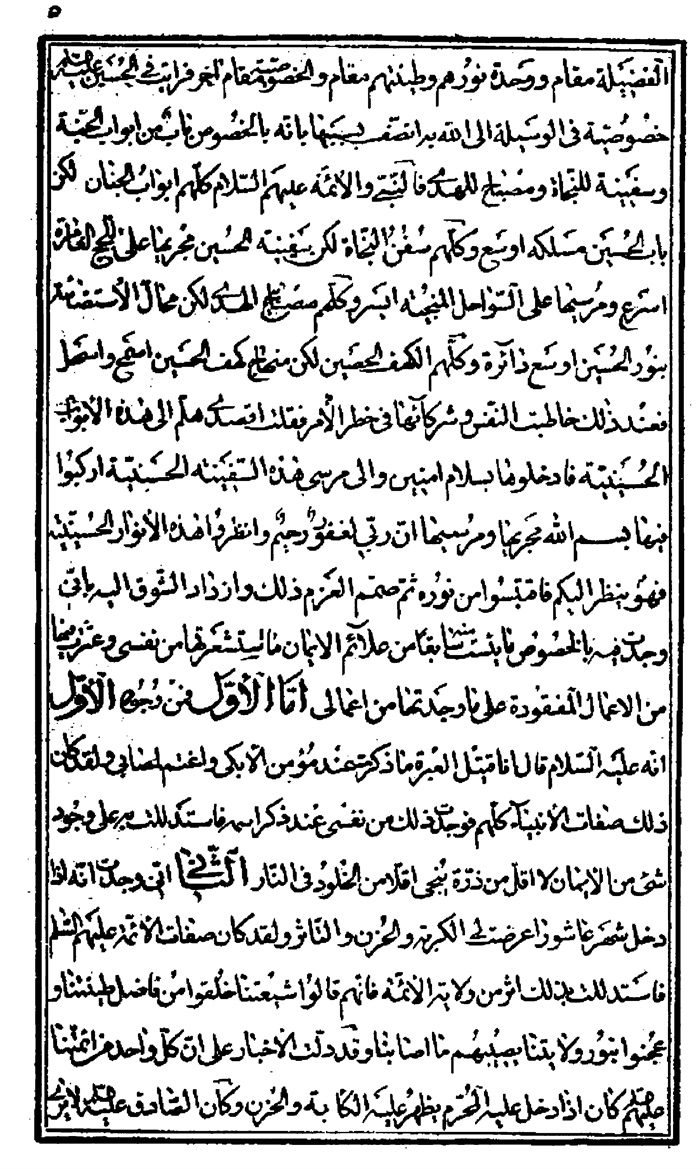 ٥
الفضيلة مقام ووحدة نورهم وطينتهم مقام والخصوصية مقام آخر فرايت في الحسين عليه السلام
خصوصية في الوسيلة الى الله بدا اتصف بسببها بانه بالخصوص باب من ابواب الجنة
وسفينة للنجاة ومصباح للهدى فالنبي والأئمة عليهم السلام كلهم ابواب الجنان لكن
باب الحسين مسلكه اوسع وكلهم سفن النجاة لكن سفينة الحسين مجريها على اللجج الغامرة
اسرع ومرسيها على السواحل المنجية ايسر وكلهم مصابيح الهدى لكن مجال الاستضائة
بنور الحسين اوسع دائرة وكلهم الكهف الحصين لكن منهاج كهف الحسين اسمح واسهل
فعند ذلك خاطبت النفس وشركائها في خطر الأمر فقلت اقصدى هلم الى هذه الأبواب
الحسينية فادخلوها بسلام امنين والى مرسى هذه السفينة الحسينية اركبوا
فيها بسم الله مجريها ومرسيها ان ربي لغفور رحيم وانظروا هذه الأنوار الحسينية
فهو ينظر اليكم فاقتبسوا من نوره ثم صمم العزم ذلك وازداد الشوق اليه باني
وجدت فيه بالخصوص ما يئست سابقا من علائم الايمان ما استشعرتها من نفسى وعثرت فيها
من الاعمال المفقودة على ما وجدتها من اعمالى اما الأول فمن وجوه الأول
انه عليه السلام قال انا قتيل العبرة ما ذكرت عند مؤمن الا بكى واغتم لمصابي ولقد كان
ذلك صفات الأنبياء كلهم فوجدت ذلك من نفسى عند ذكر اسمه فاستدللت به على وجود
شئ من الايمان لا اقل من ذرة ينجى اقلا من الخلود في النار الثاني اني وجدت انه اذا
دخل شهر عاشورا عرضت لي الكربة والحزن والتاثر ولقد كان صفات الأئمة عليهم السلم
فاستدللت بذلك اثر من ولاية الأئمة فانهم قالوا شيعتنا خلقوا من فاضل طينتنا و
عجنوا بنور ولايتنا يصيبهم ما اصابنا وقد دلت الأخبار على ان كل واحد من ائمتنا
عليهم السلام كان اذا دخل عليه المحرم يظهر عليه الكابة والحزن وكان الصادق عليه السلام لا يرى